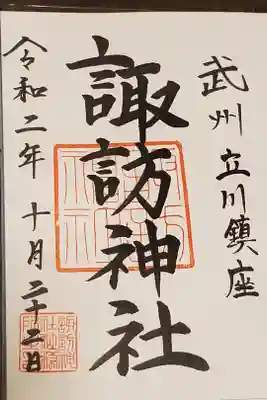 武州 立川鎮座
諏訪神社
令和二年 十月二十二日